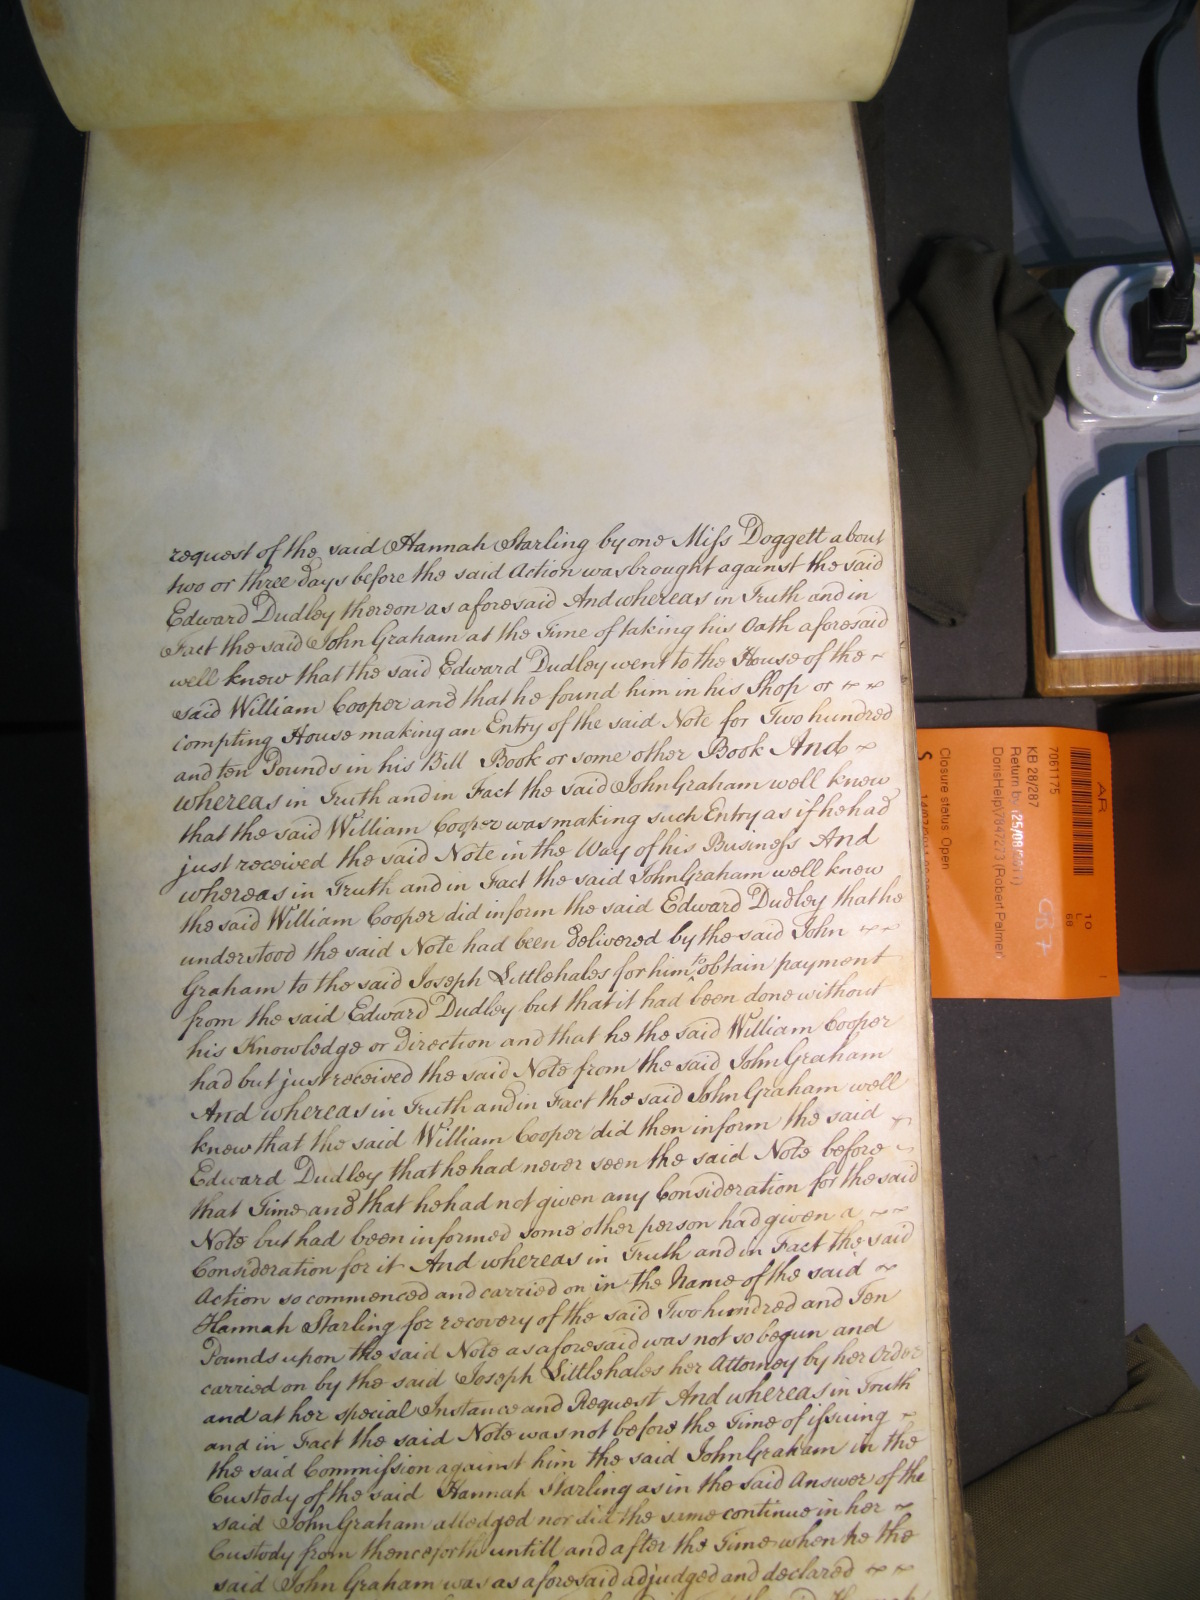 request of the said Hannah Starling by one Miss Doggett about
two or three days before the said Action was brought against the said
Edward Dudley thereon as aforesaid And whereas in Truth and in
Fact the said John Graham at the Time of taking his Oath aforesaid
well knew that the said Edward Dudley went to the House of the ~
said William Cooper and that he found him in his Shop or ~ ~
compting House making an Entry of the said Note for Two hundred
and ten Pounds in his Bill Book or some other Book And ~
whereas in Truth and in Fact the said John Graham well knew
that the said William Cooper was making such Entry as if he had
just received the said Note in the Way of his Business And
whereas in Truth and in Fact the said John Graham well knew
the said William Cooper did inform the said Edward Dudley that he
understood the said Note had been delivered by the said John ~ ~
Graham to the said Joseph Littlehales for him to obtain payment
from the said Edward Dudley but that it had been done without
his Knowledge or Direction and that he the said William Cooper
had but just received the said Note from the said John Graham
And whereas in Truth and in Fact the said John Graham well
knew that the said William Cooper did then inform the said ~
Edward Dudley that he had never seen the said Note before ~
that Time and that he had not given any Consideration for the said
Note but had been informed some other person had given a ~ ~
Consideration for it And whereas in Truth and in Fact the said
Action so commenced and carried on in the Name of the said ~
Hannah Starling for recovery of the said Two hundred and Ten
Pounds upon the said Note as aforesaid was not so begun and
carried on by the said Joseph Littlehales her Attorney by her Order
and at her special Instance and Request And whereas in Truth
and in Fact the said Note was not before the Time of issuing ~
the said Commission against him the said John Graham in the
Custody of the said Hannah Starling as in the said Answer of the
said John Graham alledged nor did the same continue in her ~
Custody from thenceforth untill and after the Time when he the
said John Graham was as aforesaid adjudged and declared ~ ~
AR
7061175
KB 28/287
Return by (25/08/2011)
DorisHelp7847273 (Robert Palmer)
Closure status: Open
S